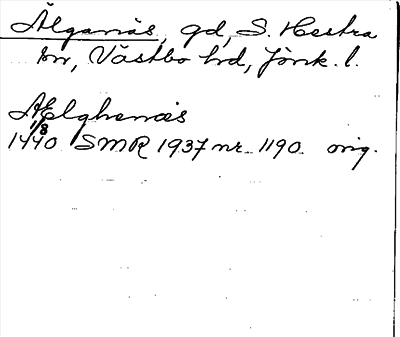 Älganäs, gd, S. Hestra
sn, Västbo hd, Jönk. l.
AElghenæs
1/8
1440 SMR 1937 nr 1190. orig.